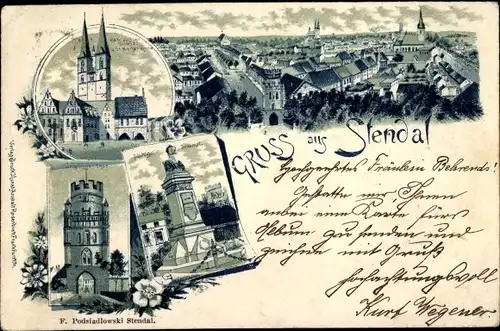 GRUSS aus Stendal
Hochgeehrtes Fräulein Behrends!
Gestatte mir Ihnen
anbei eine Karte fürs
Album zu senden und
zeichne mit Gruß
hochachtungsvoll
Kurt Wegener.
F. Podsiadlowski Stendal.